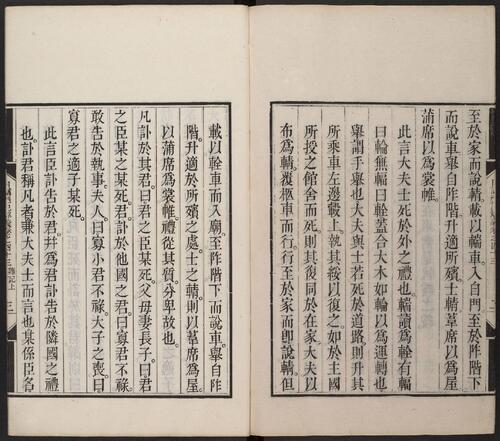 至於家而說輤載以輲車入自門至於阼階下
而說車舉自阼階升適所殯士輤葦席以為屋
蒲席以為裳帷
此言大夫士死於外之禮也輲讀為輇有輻
曰輪無輻曰輇蓋合大木如輪以為運轉也
舉謂手舉也大夫與士若死於道路則升其
所乘車左邊轂上執其綏以復之如於主國
所授之館舍而死則其復同於在家大夫以
布為輤覆柩車而行行至於家而卽說輤但
載以輇車而入廟至阼階下而說車舉自阼
階升適於所殯之處士之輤則以葦席為屋
以蒲席為裳帷禮從其質分卑故也
凡訃於其君曰君之臣某死父母妻長子曰君
之臣某之某死君訃於他國之君曰寡君不祿
敢告於執事夫人曰寡小君不祿大子之喪曰
寡君之適子某死
此言臣訃告於君幷為君訃告於隣國之禮
也訃君稱凡者兼大夫士而言也某係臣名